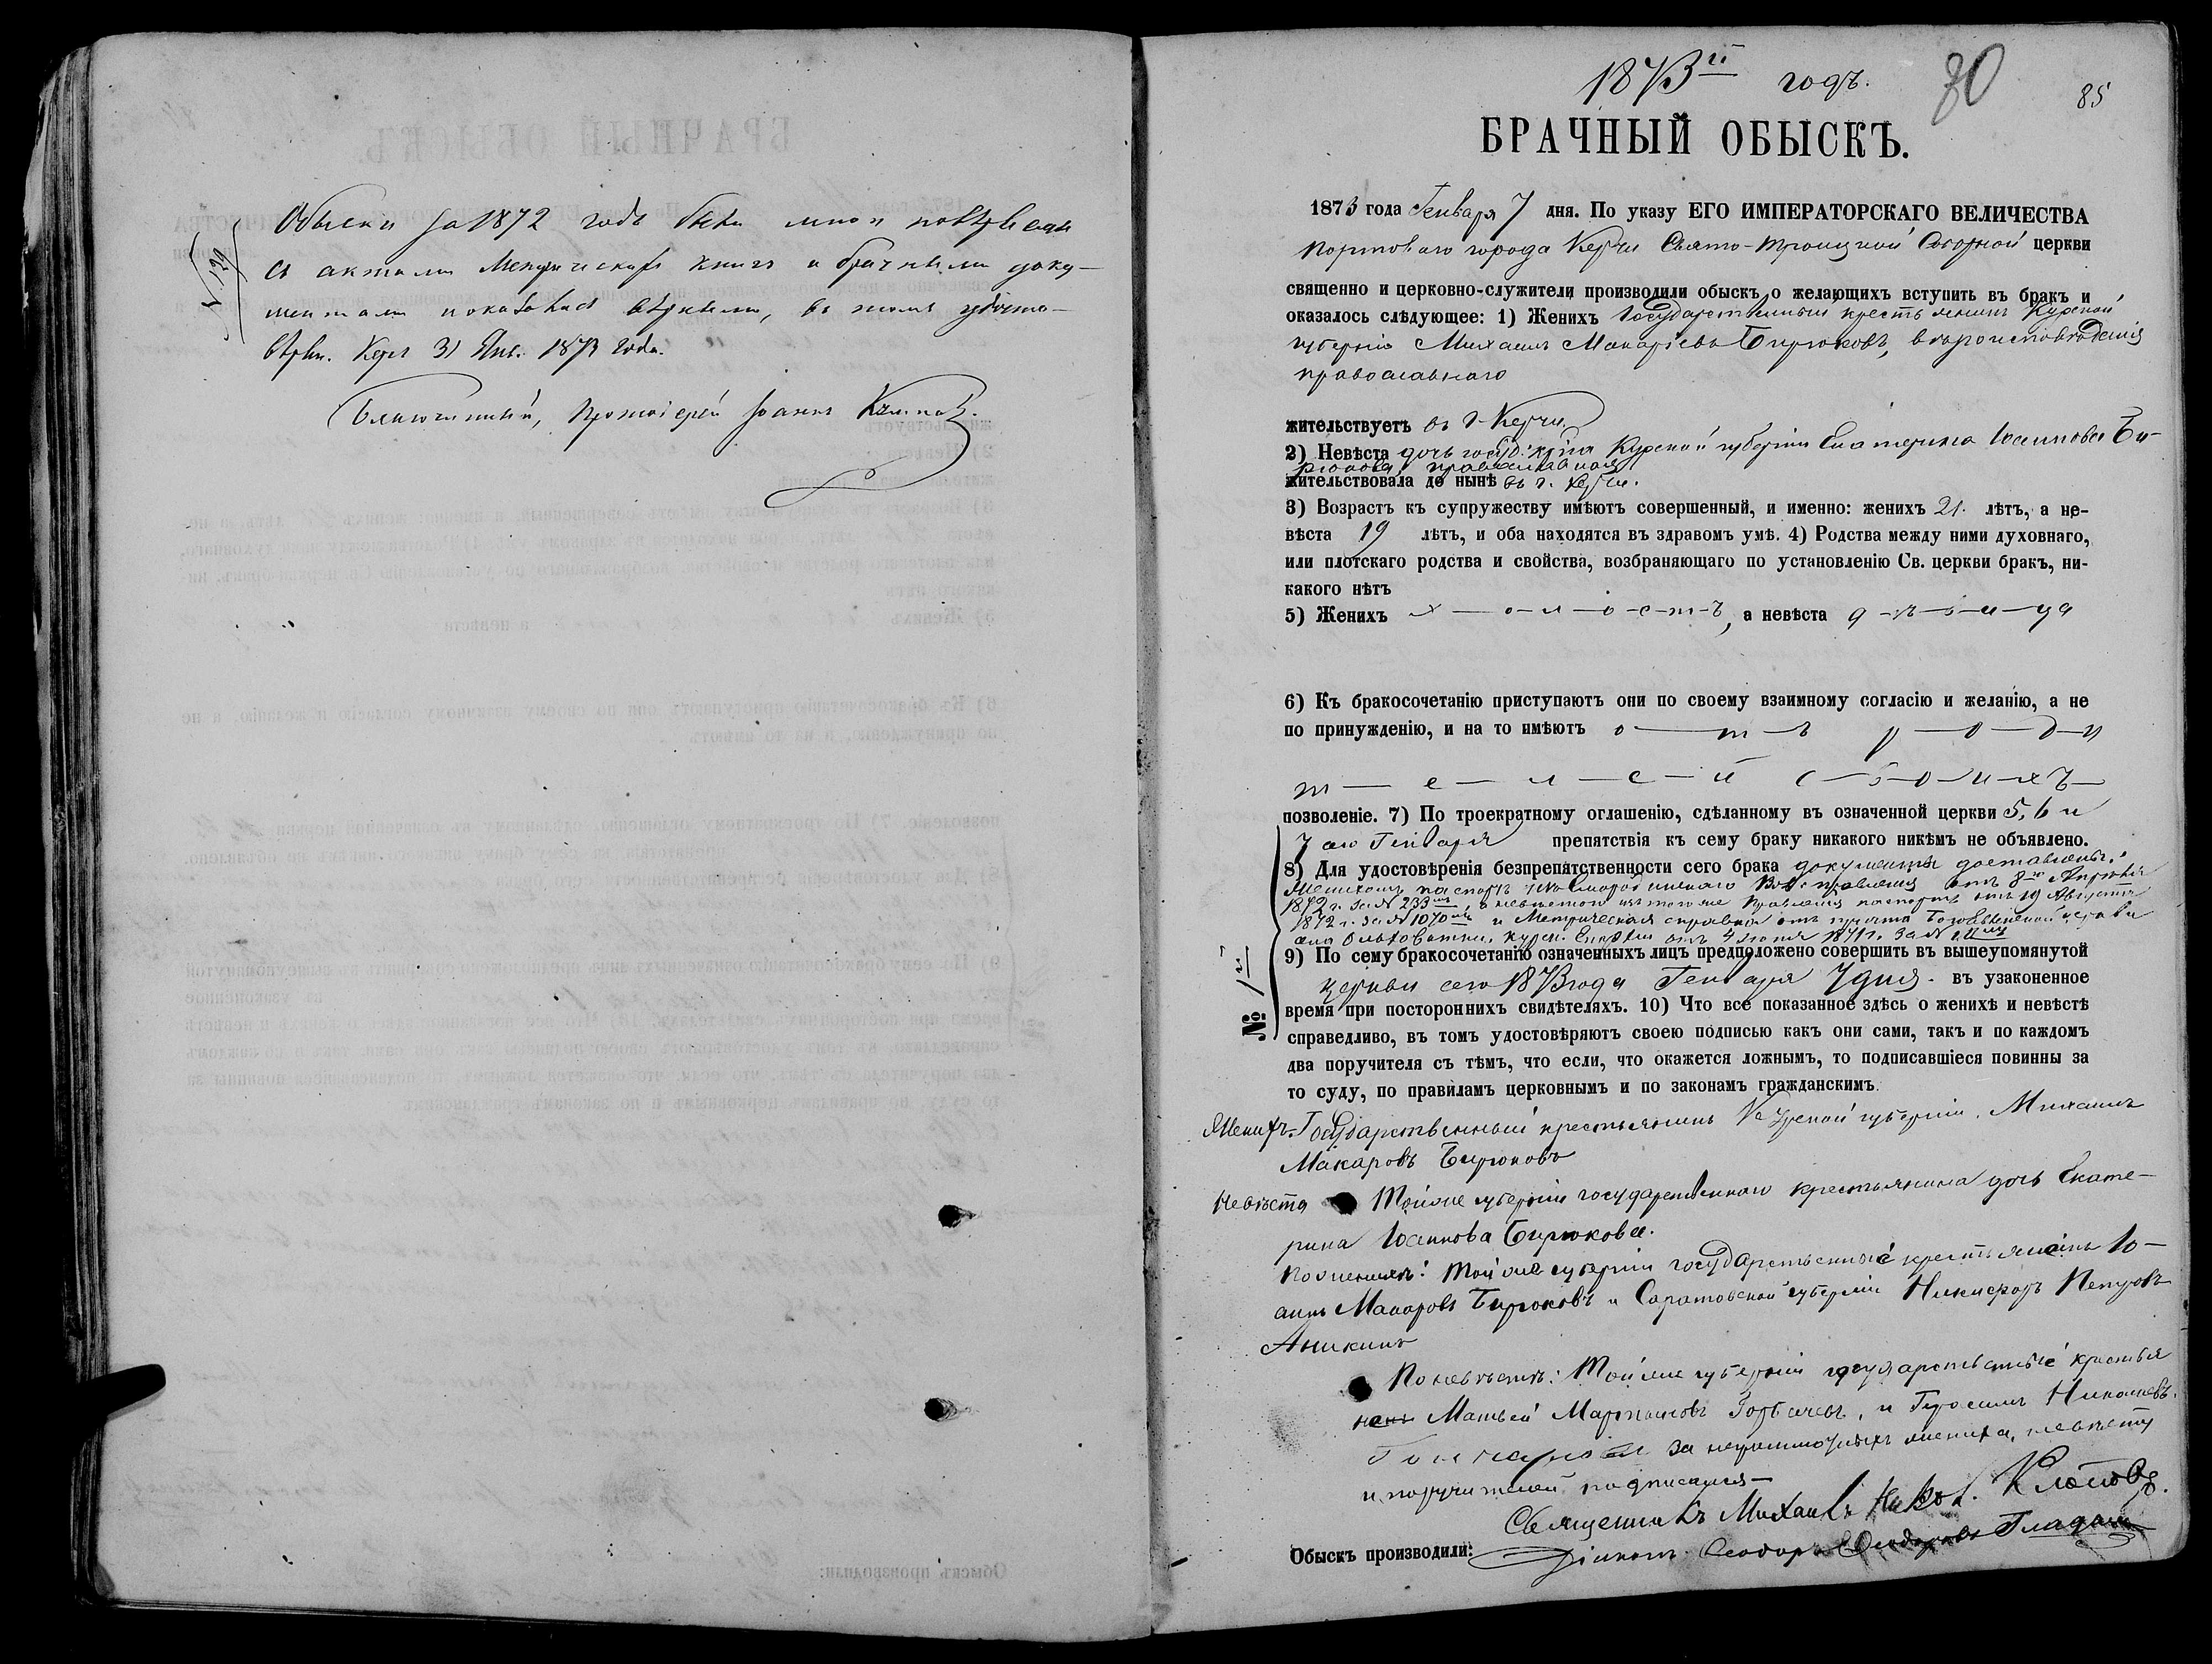 № 129
Обыски за 1872 годъ были мною повѣрены
съ актами Метрическихъ книгъ и брачными доку-
ментами показались вѣрными, въ томъ удосто-
вѣряю. Керчь 31 Янв. 1873 года.
Благочинный, Протоіерей Іоаннъ
1873й годъ.
80
85
БРАЧНЫЙ ОБЫСКЪ.
1873 года Генваря 7 дня. По указу ЕГО ИМПЕРАТОРСКАГО ВЕЛИЧЕСТВА
портоваго города Керчи Свято-Троицкой Соборной церкви
священно и церковно-служители производили обыскъ о желающихъ вступить въ бракъ и
оказалось слѣдующее: 1) Женихъ Государственный крестьянинъ Курской
губерніи Михаилъ Макаріевъ Бирюковъ, вѣроисповѣданія
православнаго
жительствуетъ въ г. Керчи.
2) Невѣста дочь госуд. кр-на Курской губерніи Екатерина Іоаннова Би-
рюкова, православная
жительствовала до нынѣ въ г. Керчи.
3) Возрастъ къ супружеству имѣютъ совершенный, и именно: женихъ 21. лѣтъ, а не-
вѣста 19 лѣтъ, и оба находятся въ здравомъ умѣ. 4) Родства между ними духовнаго,
или плотскаго родства и свойства, возбраняющаго по установленію Св. церкви бракъ, ни-
какого нѣтъ
5) Женихъ х—о—л—о—с—т—ъ, а невѣста д—ѣ—в—и—ца
6) Къ бракосочетанію приступаютъ они по своему взаимному согласію и желанію, а не
по принужденію, и на то имѣютъ о—т—ъ р—о—д—и
т—е—л—е—й с—в—о—и—х—ъ
позволеніе. 7) По троекратному оглашенію, сдѣланному въ означенной церкви 5, 6 и
7 го Генваря препятствія къ сему браку никакого никѣмъ не объявлено.
8) Для удостовѣренія безпрепятственности сего брака документы доставлены:
Женихомъ паспортъ правленія отъ 8го Апрѣля
1872 г. за № 233мъ, а невѣстою изъ того же Правленія паспортъ отъ 19 Августа
1872 г. за № 1070мъ и Метрическая справка отъ причта Богоявленской церкви
села Ольховатки, Курск. Епархіи отъ 4 Іюня 1871 г. за №
9) По сему бракосочетанію означенныхъ лицъ предположено совершить въ вышеупомянутой
церкви сего 1873 года Генваря 7 дня. въ узаконенное
№ 1й
время при постороннихъ свидѣтеляхъ. 10) Что все показанное здѣсь о женихѣ и невѣстѣ
справедливо, въ томъ удостовѣряютъ своею подписью какъ они сами, такъ и по каждомъ
два поручителя съ тѣмъ, что если, что окажется ложнымъ, то подписавшіеся повинны за
то суду, по правиламъ церковнымъ и по законамъ гражданскимъ.
Женихъ Государственный крестьянинъ Курской губерніи. Михаилъ
Макаровъ Бирюковъ
Невѣста Той же губерніи государственнаго крестьянина дочь Екате-
рина Іоаннова Бирюкова.
По женихѣ: Той же губерніи государственные крестьяне Іо-
аннъ Макаровъ Бирюковъ и Саратовской губерніи Никифоръ Петровъ
Аникинъ
По невѣстѣ: Той же губерніи государственные крестья
не Матвей Мартиновъ Горбачевъ, и Герасимъ Николаевъ.
Гончаровъ за неграмотныхъ жениха, невѣсту
и поручителей подписался—
Священникъ Михаилъ Никол. Клоповъ.
Обыскъ производили: Діаконъ Ѳеодоръ Ѳеодоровъ Гладкій